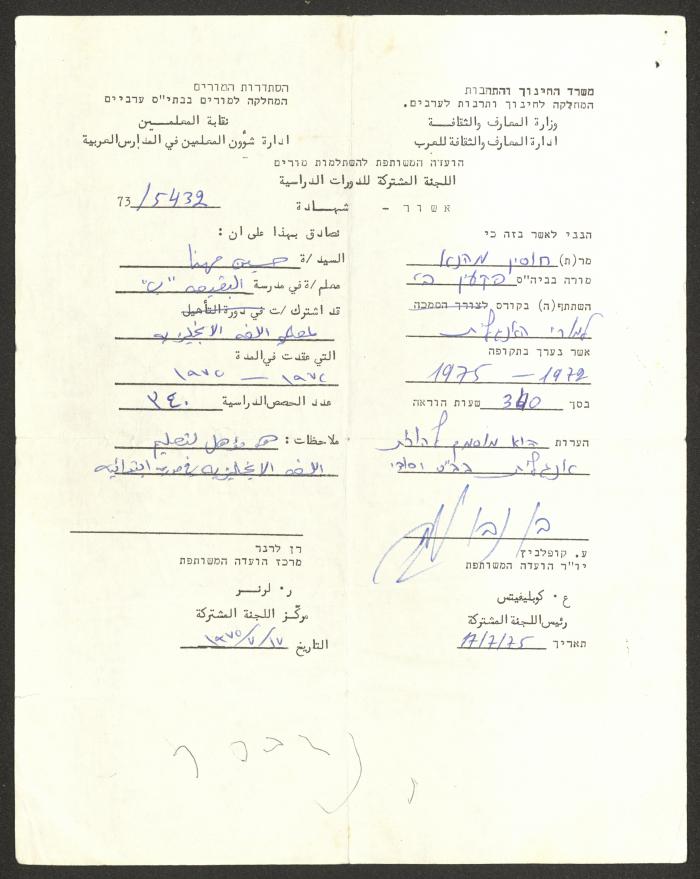 משרד החינוך והתרבות
המחלקה לחינוך ותרבות לערבים.
وزارة المعارف والثقافة
ادارة المعارف والثقافة للعرب
הסתדרות המורים
המחלקה למורים בבתי"ס ערביים
نقابة المعلمين
ادارة شؤون المعلمين في المدارس العربية
הועדה המשותפת להשתלמות מורים
اللجنة المشتركة للدورات الدراسية
אשור - شهادة
73/5432
הנני לאשר בזה כי
מר(ת) חוסין מהנא
מורה בביה"ס פקעין ב'
השתתף(ה) בקורס לצורך הסמכה
למורי האנגלית
אשר נערך בתקופה
1972 - 1975
בסך 340 שעות הוראה
הערות הוא מוסמך להורות
אנגלית בבי"ס יסודי
نصادق بهذا على ان:
السيد/ة حسين مهنا
معلم/ة في مدرسة البقيعه "ب"
قد اشترك/ت في دورة التأهيل
لمعلمي اللغه الانجليزيه
التي عقدت في المدة
١٩٧٢ - ١٩٧٥
عدد الحصص الدراسية ٣٤٠
ملاحظات: هو مؤهل لتعليم
اللغه الانجليزيه في مدرسه ابتدائيه
ע. קופלביץ
יו"ר הועדה המשותפת
ع. كوبليفيتس
رئيس اللجنة المشتركة
תאריך 17/7/75
רן לרנר
מרכז הועדה המשותפת
ر. لرنر
مركّز اللجنة المشتركة
التاريخ ١٩٧٥/٧/١٧